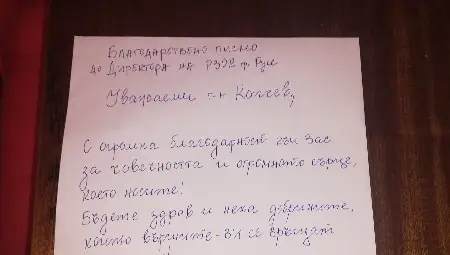 Благодарствено писмо
до Директора на РЗОК гр. Русе
Уважаеми г-н Колев,
С огромна благодарност към Вас
за човечността и огромното сърце,
което носите!
Бъдете здрав и нека добрините,
които вършите - Ви се връщат